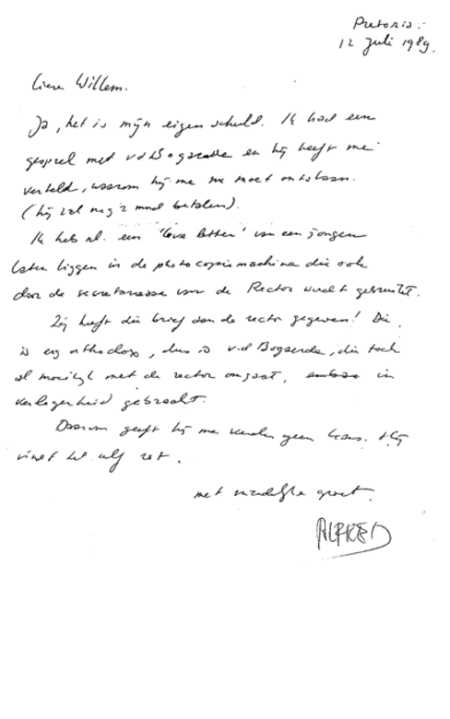 Pretoria:
12 Juli 1989.
Lieve Willem.
Ja, het is mijn eigen schuld. Ik had een
gesprek met v d Bogaerde en hij heeft me
verteld, waarom hij me nu moet ontslaan.
(hij zal nog 2 mnd betalen).
Ik heb nl. een 'love letter' van een jongen
laten liggen in de photocopiemachine die ook
door de secretaresse van de Rector wordt gebruikt.
Zij heeft die brief aan de rector gegeven! Die
is erg orthodox, dus is v.d Bogaerde, die toch
al moeilijk met de rector omgaat, in
verlegenheid gebracht.
Daarom geeft hij me verder geen kans. Hij
vindt het zelf rot.
met vriendelijke groet.
ALFRED